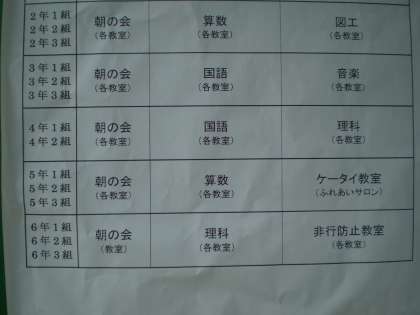 2年1組
2年2組
2年3組
朝の会
(各教室)
算数
(各教室)
図工
(各教室)
3年1組
3年2組
3年3組
朝の会
(各教室)
国語
(各教室)
音楽
(各教室)
4年1組
4年2組
朝の会
(各教室)
国語
(各教室)
理科
(各教室)
5年1組
5年2組
5年3組
朝の会
(各教室)
算数
(各教室)
ケータイ教室
(ふれあいサロン)
6年1組
6年2組
6年3組
朝の会
(教室)
理科
(各教室)
非行防止教室
(各教室)